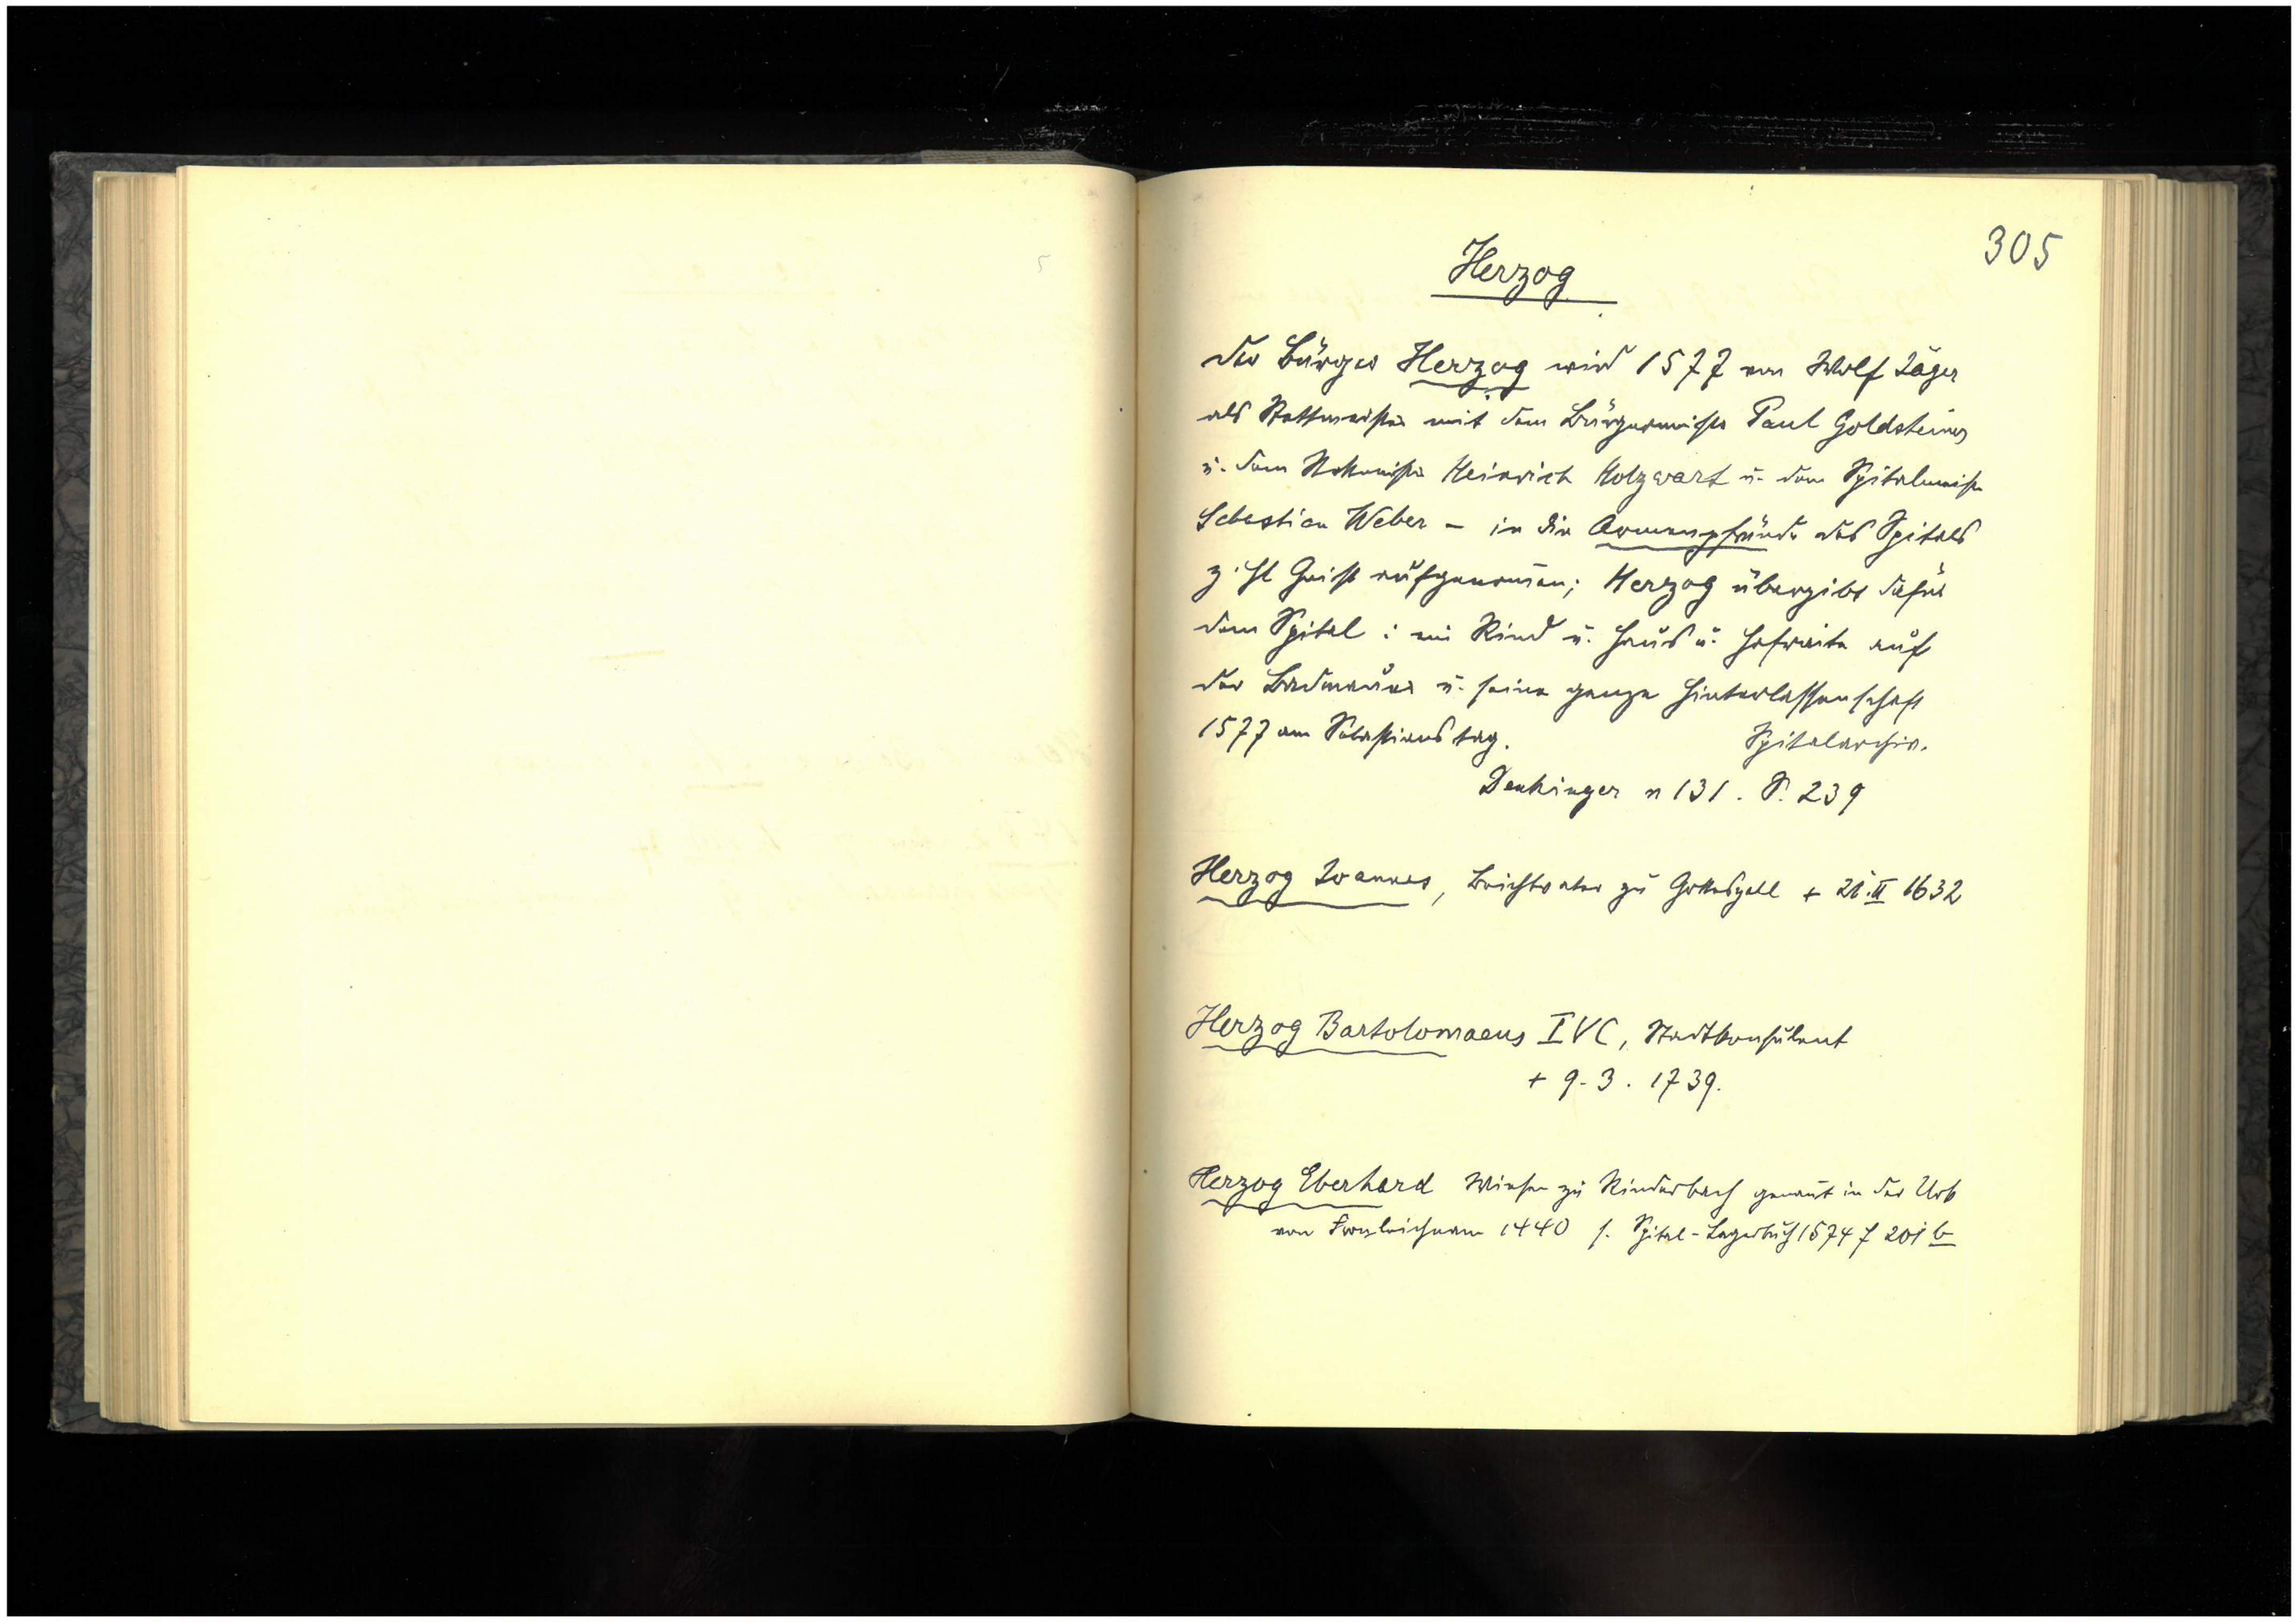 305
Herzog
der Bürger Herzog wird 1577 von Wolf Jäger
als Stattmeister mit dem Bürgermeister Paul Goldsteiner
u. dem Stettmeister Heinrich Holzwart u. dem Spitalmeister
Sebastian Weber – in die Armenpfründe des Spitals
z. hl Geist aufgenom̅en; Herzog übergibt dafür
dem Spital: ein Rind u. Haus u. Hofraite auf
der Badmauer u. seine ganze Hinterlassenschaft
1577 am Sebastianstag. Spitalarchiv.
Denkinger n 131. S. 239
Herzog Joannes, Beichtvater zu Gotteszell + 21. II 1632
Herzog Bartolomaeus IVC, Stadtkonsulent
+ 9. 3. 1739.
Herzog Eberhard Wiesen zu Rinderbach genan̅t in der Urk
von Fronleichnam 1440 s. Spital-Lagerbuch 1574 f 201 b